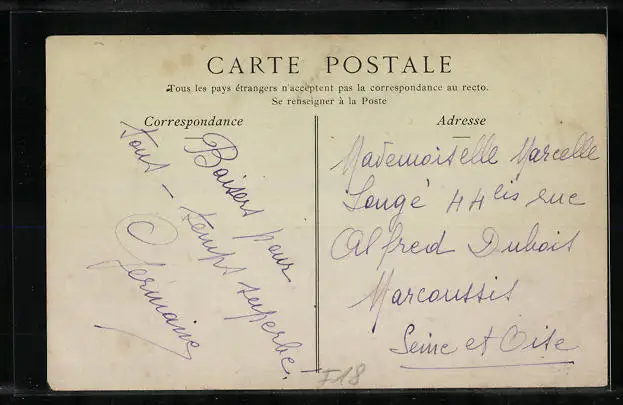 CARTE POSTALE
Tous les pays étrangers n'acceptent pas la correspondance au recto.
Se renseigner à la Poste
Correspondance
Baisers pour
tout – temps superbe.
Germaine
Adresse
Mademoiselle Marcelle
Longé 44 bis rue
Alfred Dubois
Marcoussis
Seine et Oise
F18